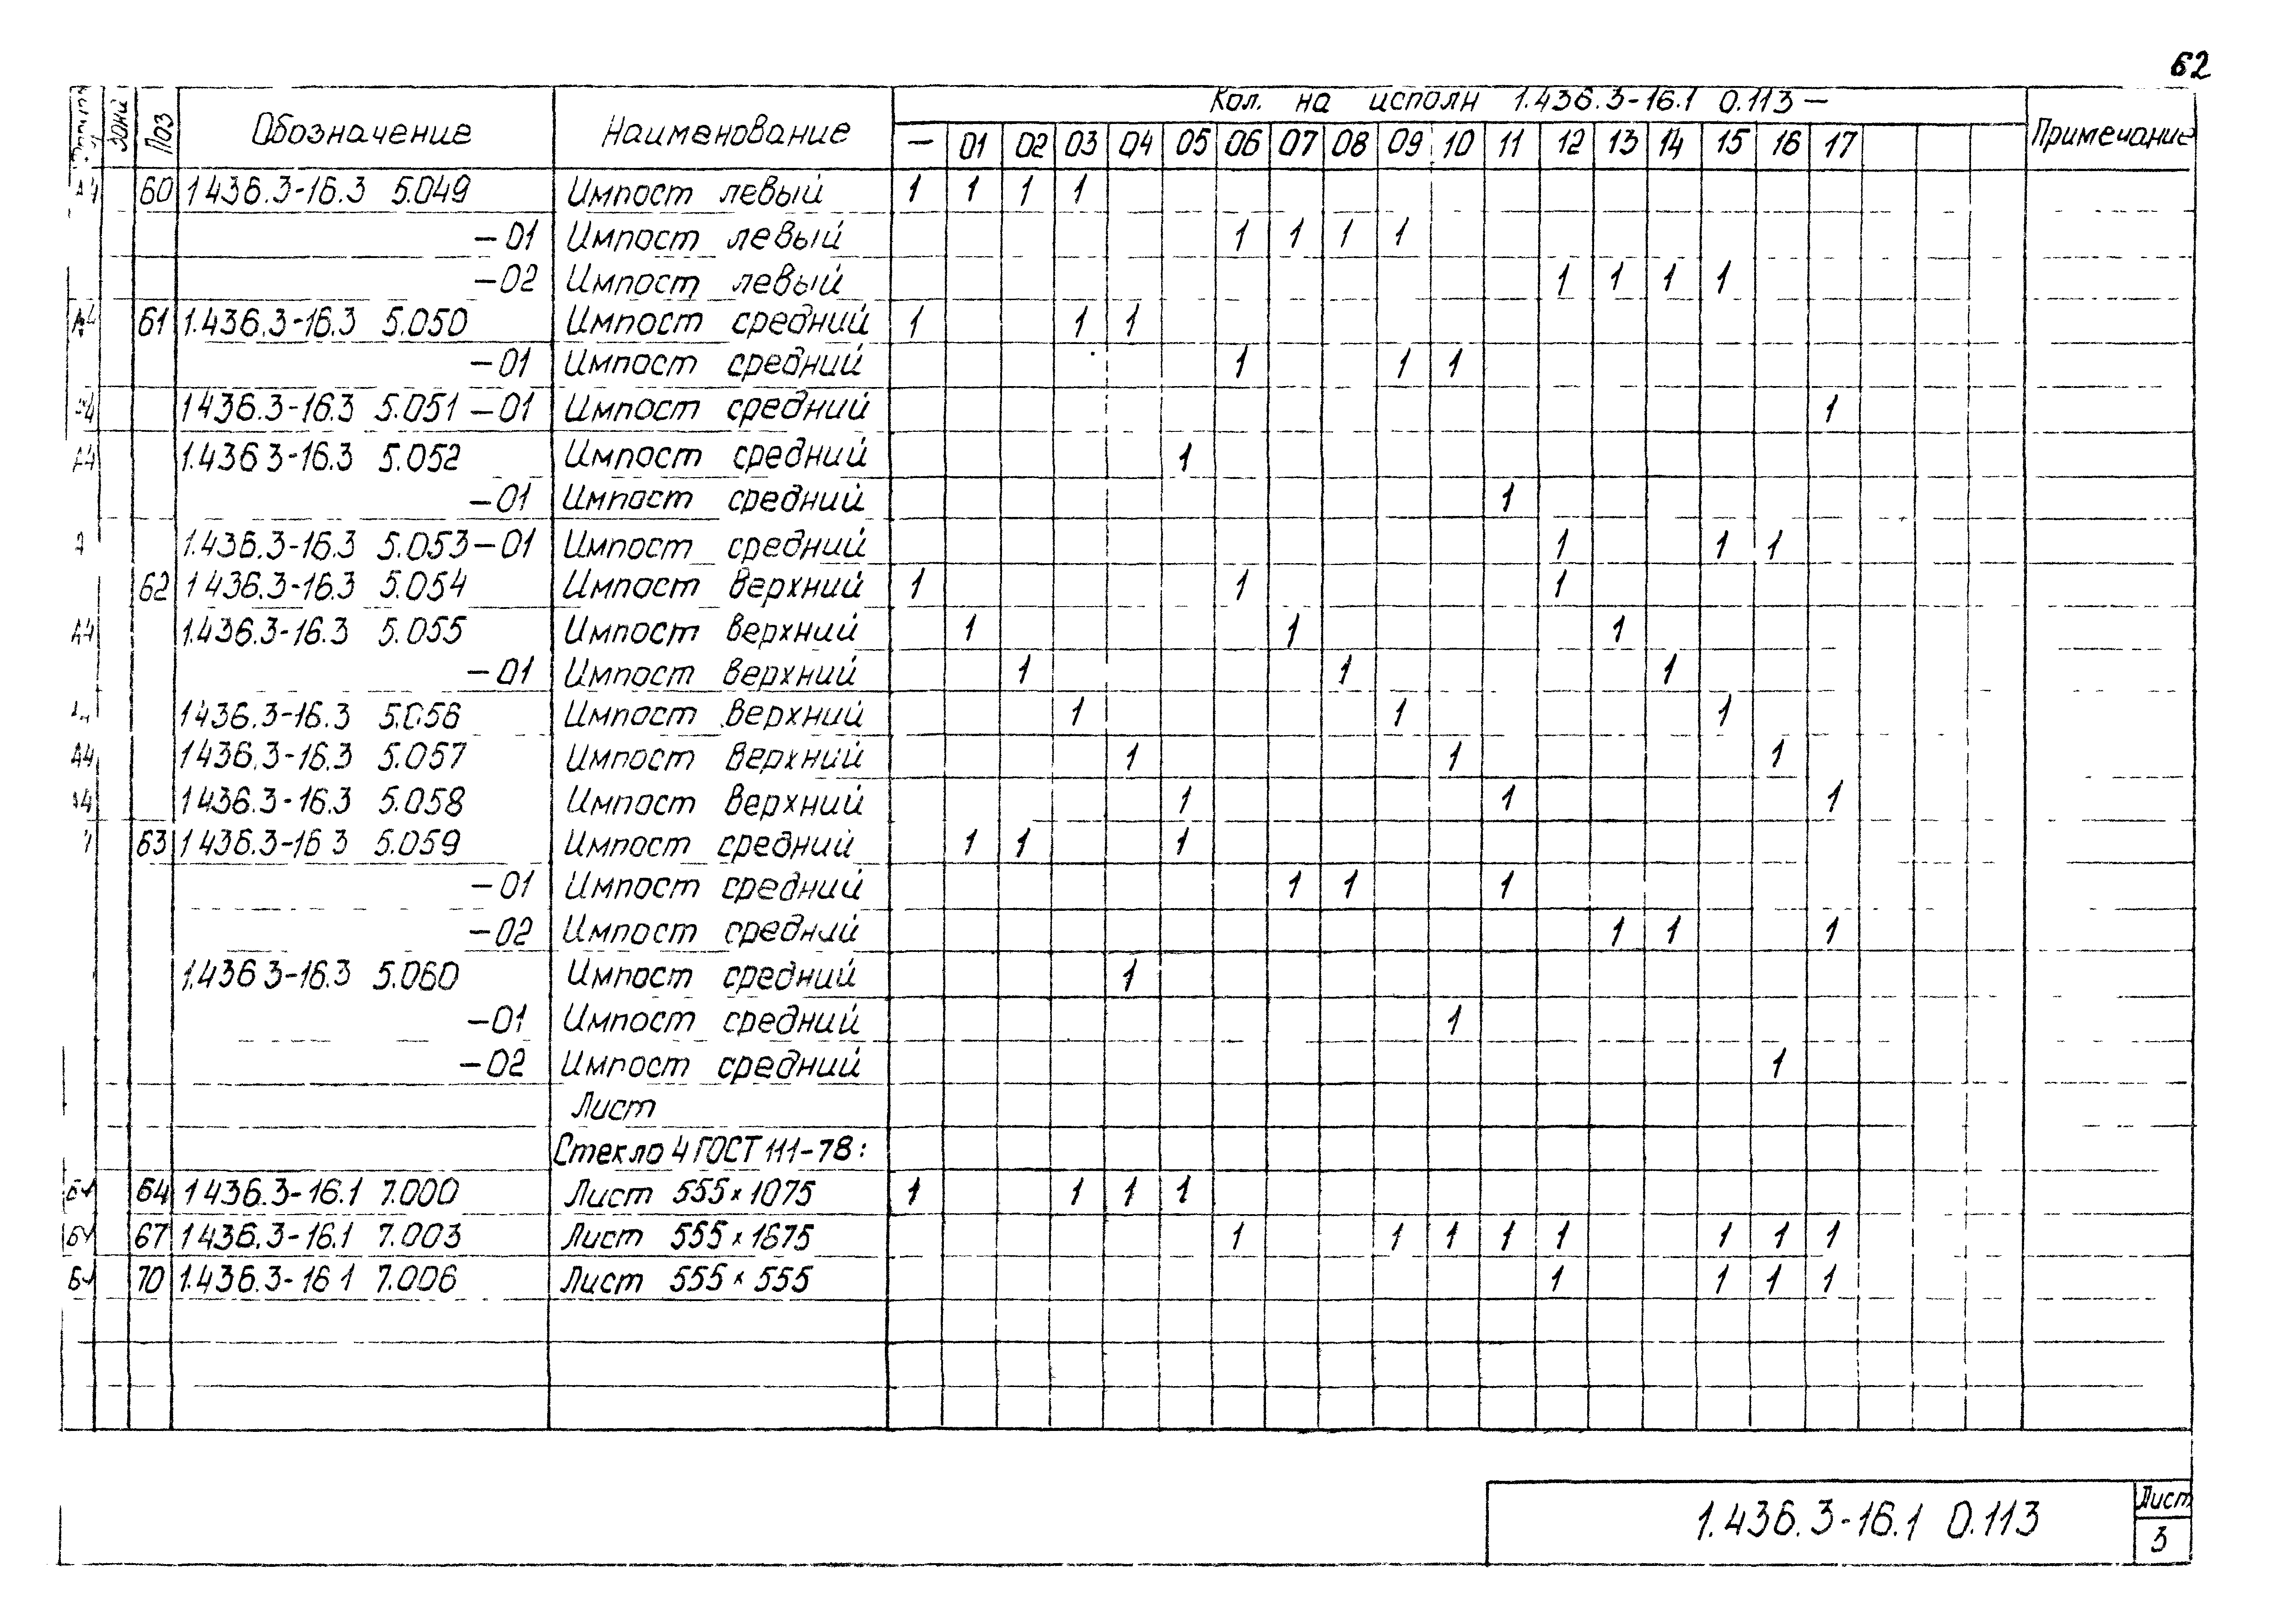 62
Зона Поз Обозначение Наименование Кол. на исполн 1.436.3-16.1 0.113— Примечание
— 01 02 03 04 05 06 07 08 09 10 11 12 13 14 15 16 17
А4 60 1 436.3-16.3 5.049 Импост левый 1 1 1 1
—01 Импост левый 1 1 1 1
—02 Импост левый 1 1 1 1
А4 61 1.436.3-16.3 5.050 Импост средний 1 1 1
—01 Импост средний 1 1 1
1 436.3-16.3 5.051—01 Импост средний 1
А4 1.436 3-16.3 5.052 Импост средний 1
—01 Импост средний 1
1.436.3-16.3 5.053—01 Импост средний 1 1 1
62 1 436.3-16.3 5.054 Импост верхний 1 1 1
А4 1.436.3-16.3 5.055 Импост верхний 1 1 1
—01 Импост верхний 1 1 1
1 436.3-16.3 5.056 Импост верхний 1 1 1
А4 1 436.3-16.3 5.057 Импост верхний 1 1 1
А4 1 436.3-16.3 5.058 Импост верхний 1 1 1
63 1 436.3-16 3 5.059 Импост средний 1 1 1
—01 Импост средний 1 1 1
—02 Импост средний 1 1 1
1.436 3-16.3 5.060 Импост средний 1
—01 Импост средний 1
—02 Импост средний 1
Лист
Стекло 4 ГОСТ 111-78:
БЧ 64 1 436.3-16.1 7.000 Лист 555×1075 1 1 1 1
БЧ 67 1 436.3-16.1 7.003 Лист 555×1675 1 1 1 1 1 1 1 1
БЧ 70 1.436.3-16 1 7.006 Лист 555×555 1 1 1 1
1.436.3-16.1 0.113
Лист
3